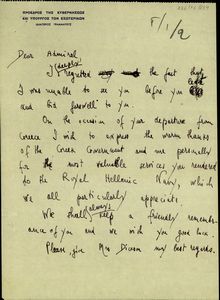 ΠΡΟΕΔΡΟΣ ΤΗΣ ΚΥΒΕΡΝΗΣΕΩΣ
ΚΑΙ ΥΠΟΥΡΓΟΣ ΤΩΝ ΕΞΩΤΕΡΙΚΩΝ
Dear Admiral,
I deeply regretted the fact that
I was unable to see you before you left
and bid farewell to you.
On the occasion of your departure from
Greece I wish to express the warm thanks
of the Greek Government and me personally
for the most valuable services you rendered
to the Royal Hellenic Navy, which
we all particularly appreciate.
We shall always keep a friendly remembr-
ance of you and we wish you good luck.
Please give Mrs my best regards.